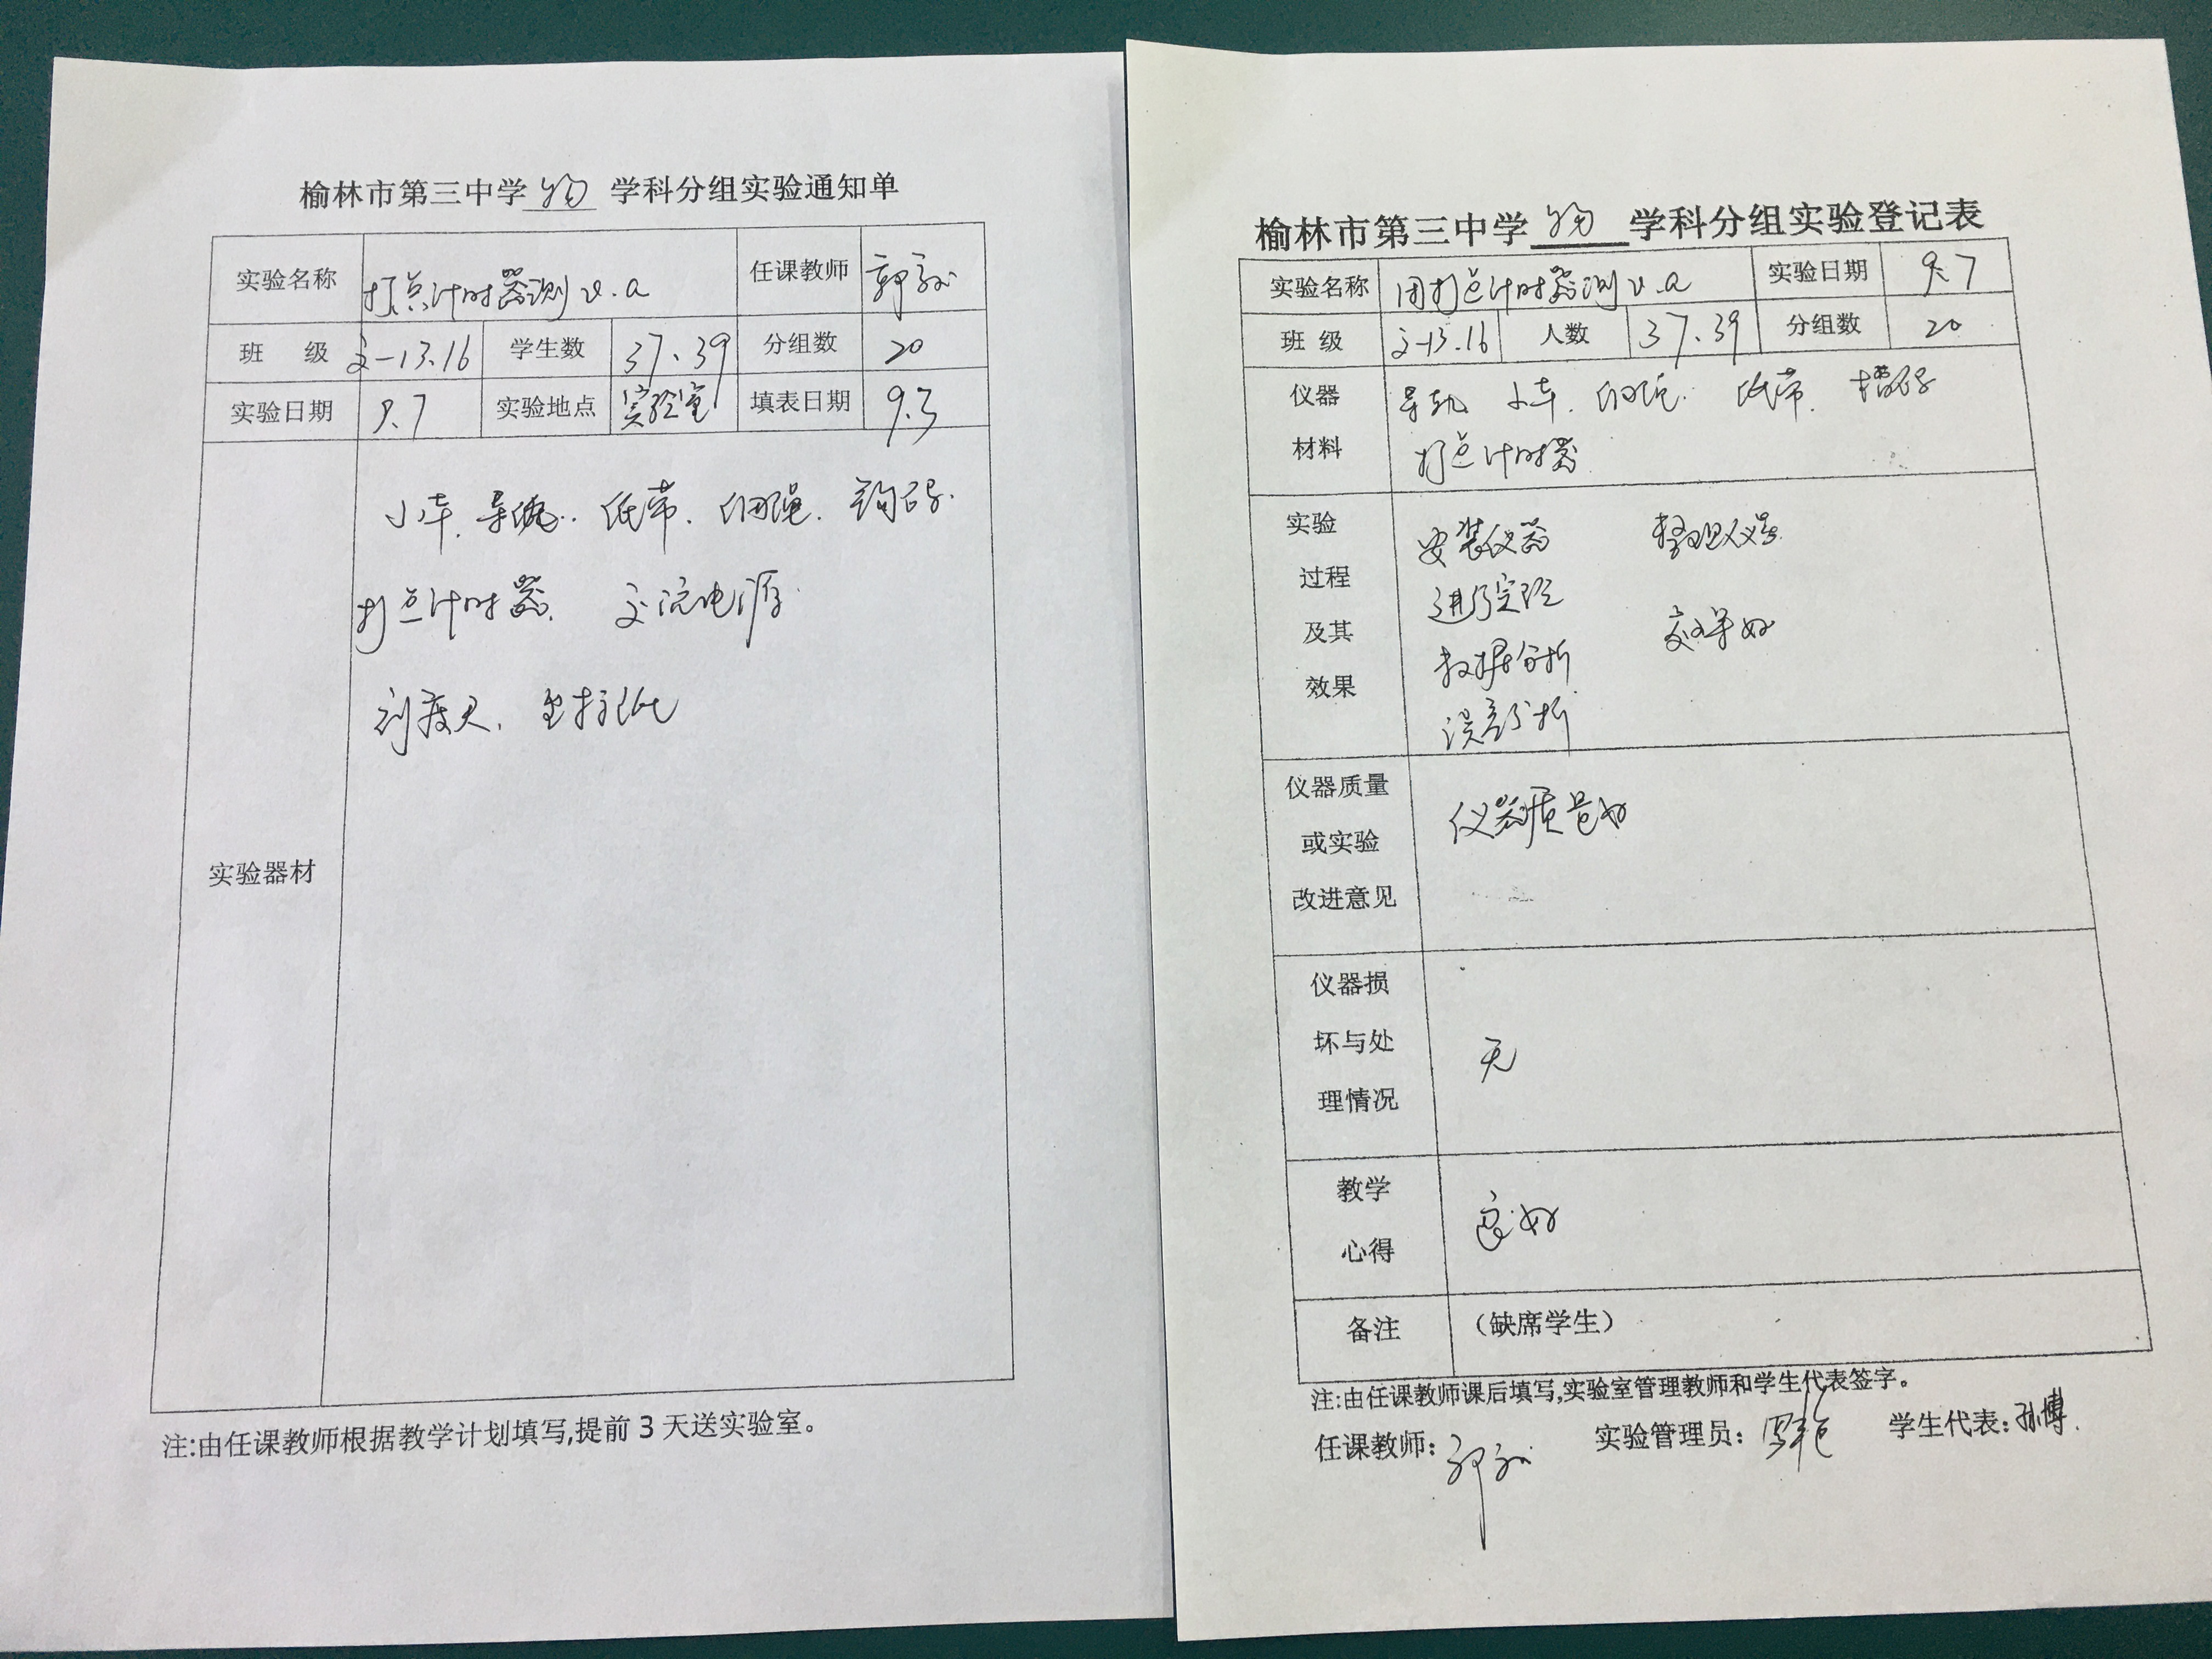 榆林市第三中学 物 学科分组实验通知单
实验名称 打点计时器测v.a 任课教师 郭
班 级 13.16 学生数 37、39 分组数 20
实验日期 9.7 实验地点 实验室 填表日期 9.3
实验器材
小车. 导轨. 纸带. 细绳. 钩码.
打点计时器. 交流电源.
刻度尺. 坐标纸
注:由任课教师根据教学计划填写,提前3天送实验室。
榆林市第三中学 物 学科分组实验登记表
实验名称 用打点计时器测v.a 实验日期 9.7
班 级 13.16 人数 37.39 分组数 20
仪器 导轨 小车. 细绳. 纸带. 槽码
材料 打点计时器
实验 安装仪器 整理仪器
过程 进行实验
及其 数据分析 效果好
效果 误差分析
仪器质量 仪器质量好
或实验
改进意见
仪器损
坏与处 无
理情况
教学 良好
心得
备注 （缺席学生）
注:由任课教师课后填写,实验室管理教师和学生代表签字。
任课教师: 郭 实验管理员: 学生代表: 孙博.